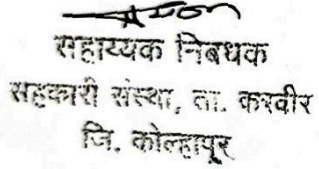 सहाय्यक निबधक
सहकारी संस्था, ता. करवीर
जि. कोल्हापूर